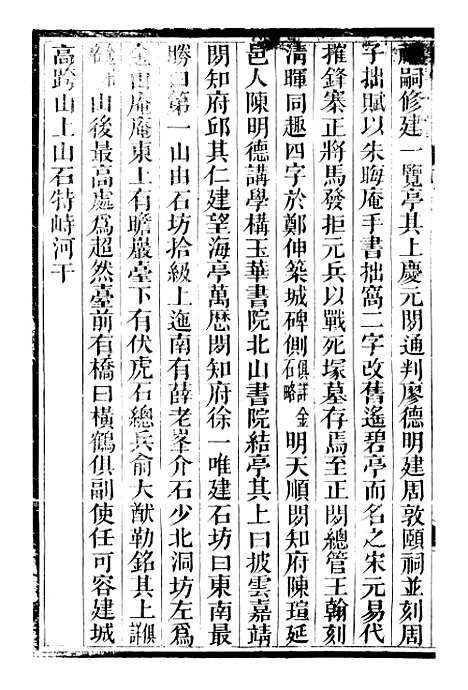 嗣修建一覽亭其上慶元閒通判廖德明建周敦頤祠並刻周
字拙賦以朱晦庵手書拙窩二字改舊遙碧亭而名之宋元易代
摧鋒寨正將馬發拒元兵以戰死塚墓存焉至正閒總管王翰刻
清暉同趣四字於鄭伸築城碑側俱詳金石略明天順閒知府陳瑄延
邑人陳明德講學構玉華書院北山書院結亭其上曰披雲嘉靖
閒知府邱其仁建望海亭萬厯閒知府徐一唯建石坊曰東南最
勝曰第一山由石坊拾級上迤南有薛老峯介石少北洞坊左爲
庵庵東上有瞻巖臺下有伏虎石總兵俞大猷勒銘其上俱詳
山後最高處爲超然臺前有橋曰橫鶴俱副使任可容建城
高跨山上山石特峙河干